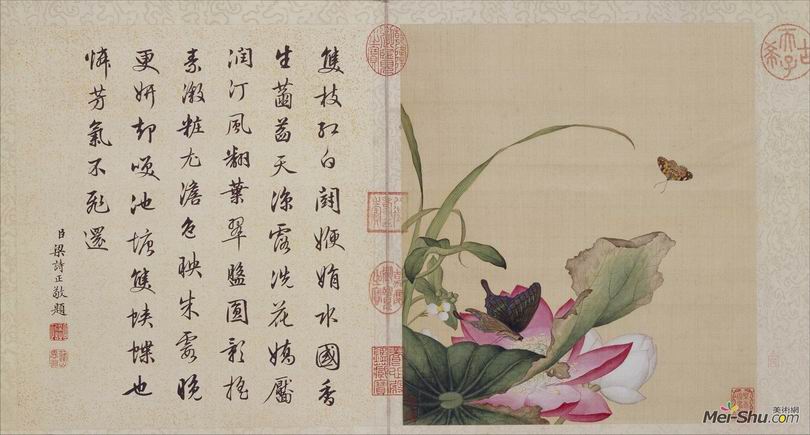 隻枝紅白鬪㛹娟水國香
生菡萏天涼露洗花嬌靨
潤汀風翻葉翠盤圓影搖
素粧尤澹色映朱霞晚
更妍却喚池塘隻蛺蝶也
憐芳氣不飛還
臣梁詩正敬題
古希天子
美術網
Mei-Shu.com